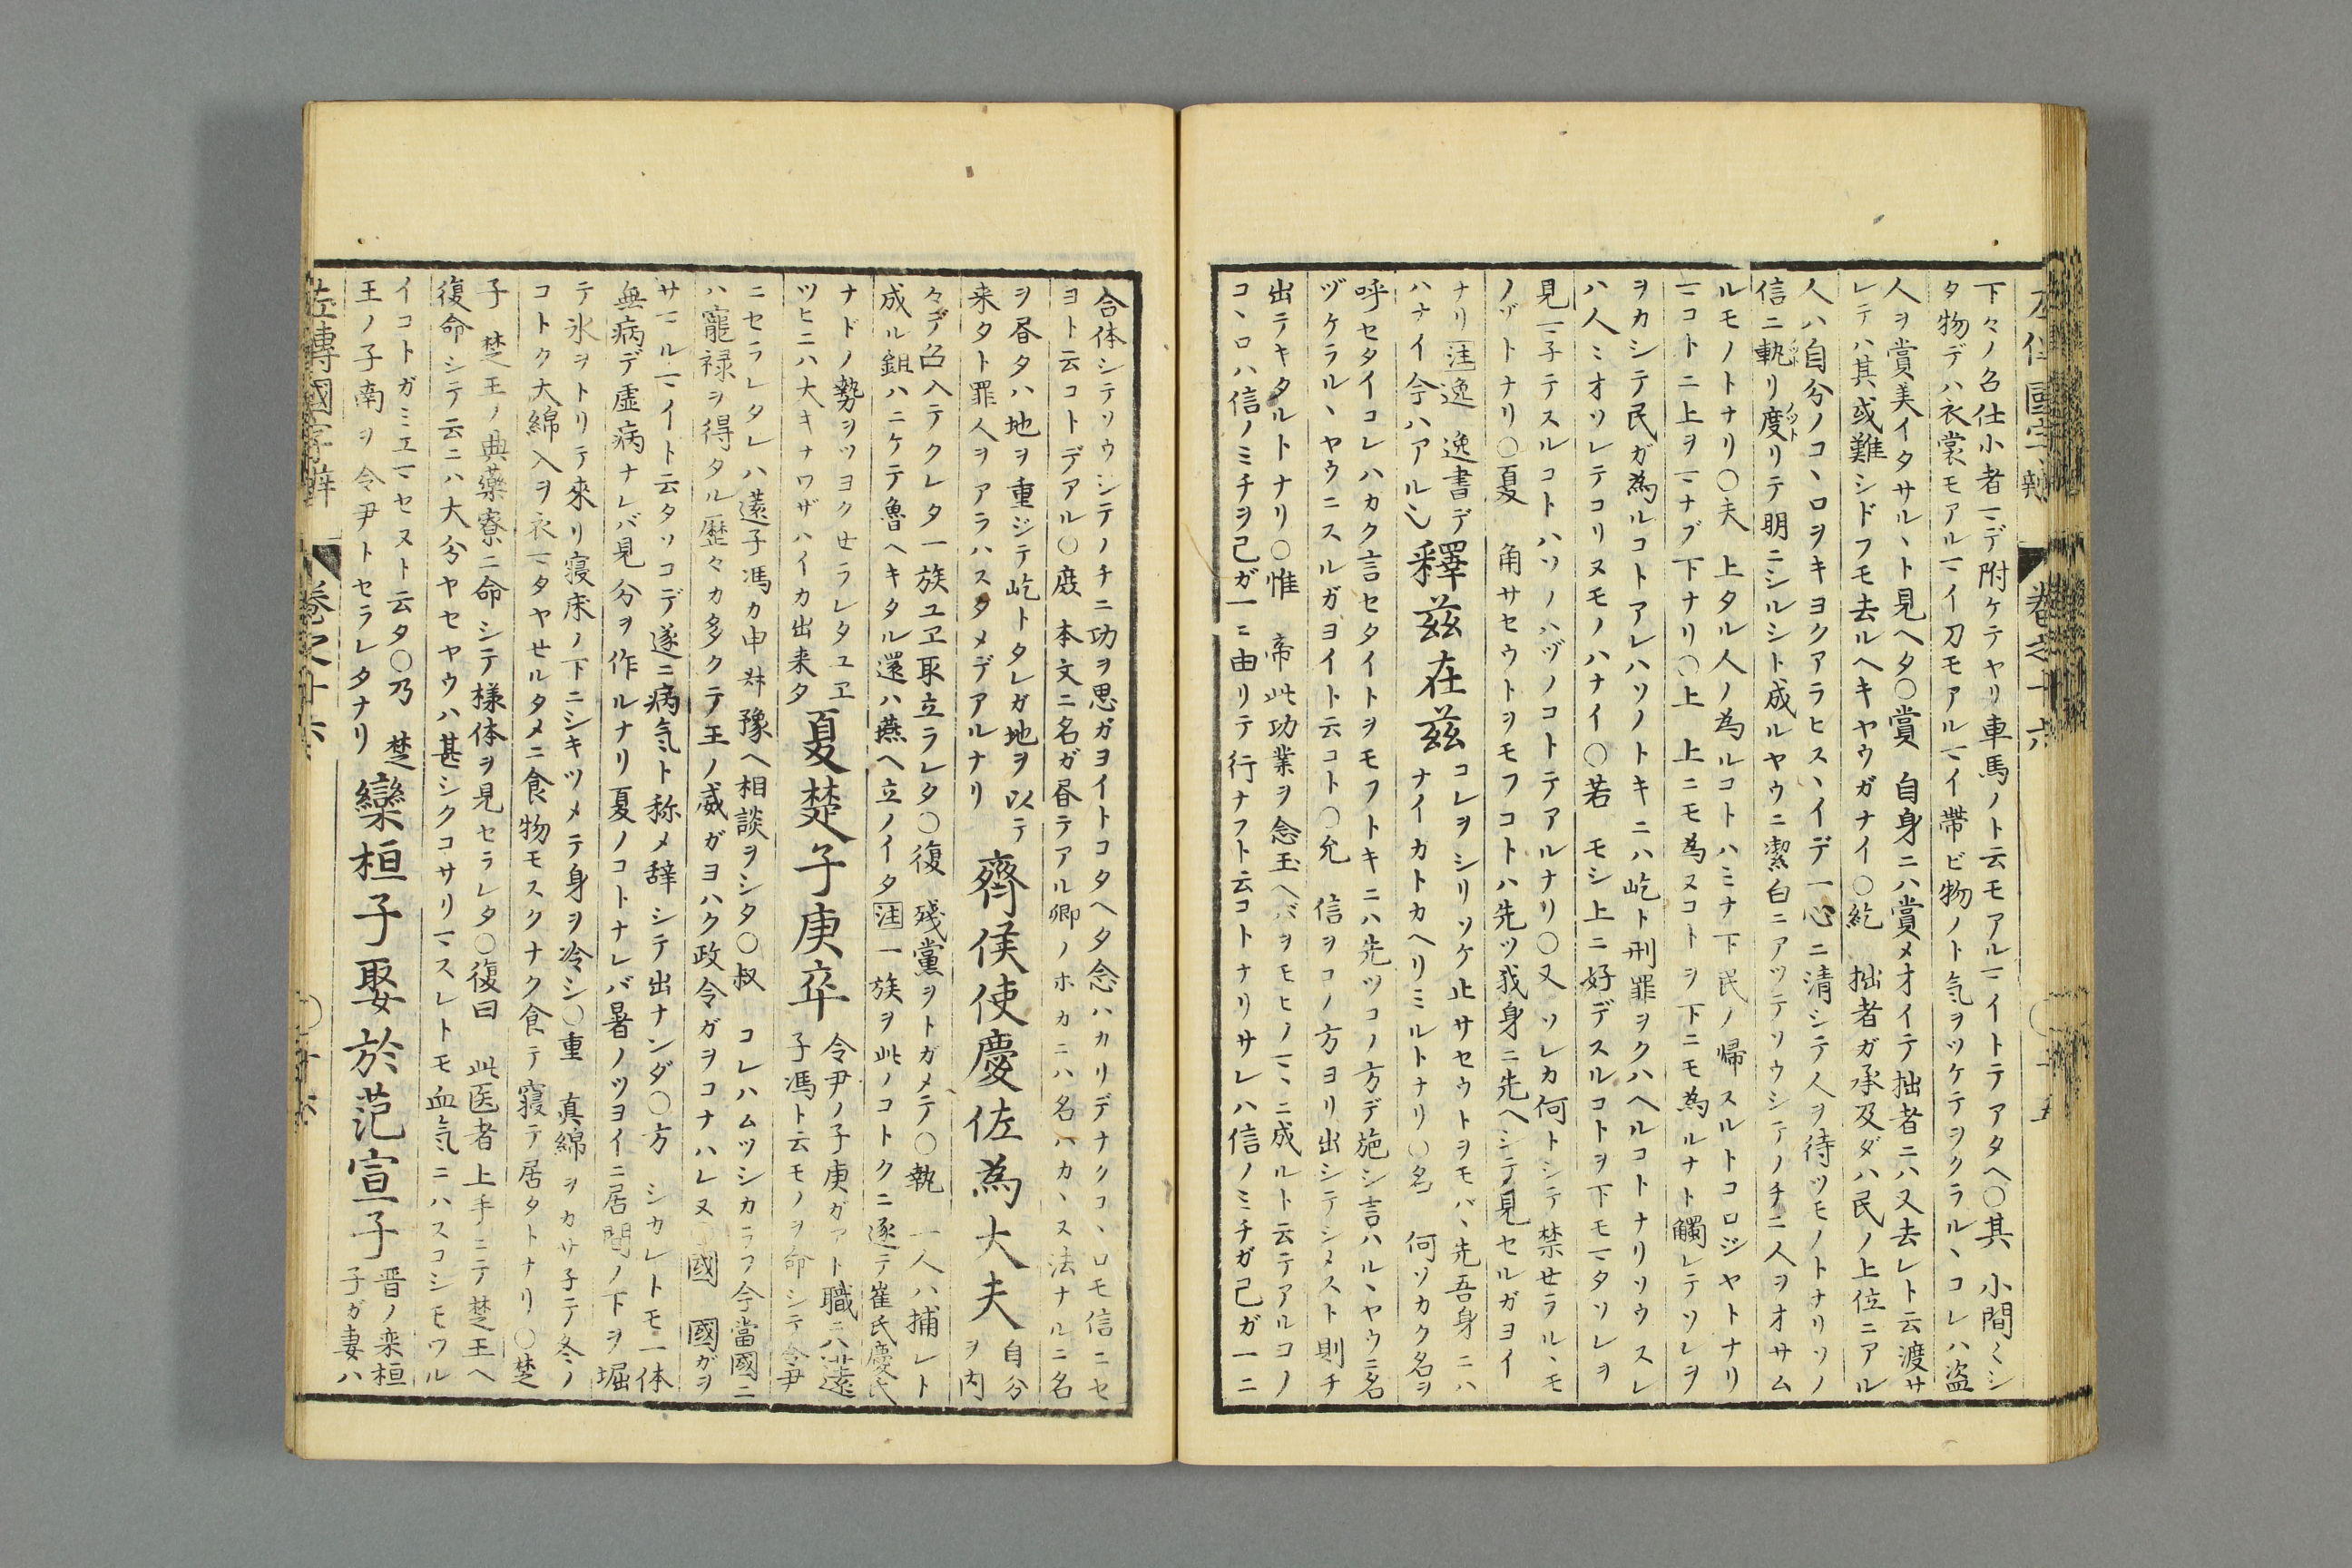 左傳國字辨 巻之十六 ○十五
下々ノ召仕小者マデ附ケテヤリ車馬ノト云モアルマイトテアタヘ○其 小間〻シ
タ物デハ衣裳モアルマイ刀モアルマイ帶ビ物ノト気ヲツケテヲクラルヽコレハ盗
人ヲ賞美イタサルヽト見ヘタ○賞 自身ニハ賞メオイテ拙者ニハ又去レト云渡サ
レテハ其或難シドフモ去ルヘキヤウガナイ○紇 拙者ガ承及ダハ民ノ上位ニアル
人ハ自分ノコヽロヲキヨクアラヒスヽイデ一心ニ清シテ人ヲ待ツモノトナリソノ
信ニ軌リ度リテ明ニシルシト成ルヤウニ潔白ニアツテソウシテノチニ人ヲオサム
ルモノトナリ○夫 上タル人ノ為ルコトハミナ下民ノ帰スルトコロジヤトナリ
マコトニ上ヲマナブ下ナリ○上 上ニモ為ヌコトヲ下ニモ為ルナト觸レテソレヲ
ヲカシテ民ガ為ルコトアレハソノトキニハ屹ト刑罪ヲクハヘルコトナリソウスレ
ハ人ミオソレテコリヌモノハナイ○若 モシ上ニ好デスルコトヲ下モマタソレヲ
見マ子テスルコトハソノハヅノコトテアルナリ○又 ソレカ何トシテ禁セラルヽモ
ノゾトナリ○夏 角サセウトヲモフコトハ先ツ我身ニ先ヘシテ見セルガヨイ
ナリ 注 逸 逸書デ
ハナイ今ハアルし
釋茲在茲
コレヲシリソケ止サセウトヲモバヽ先吾身ニハ
ナイカトカヘリミルトナリ○名 何ソカク名ヲ
呼セタイコレハカク言セタイトヲモフトキニハ先ツコノ方デ施シ言ハルヽヤウニ名
ヅケラルヽヤウニスルガヨイト云コト○允 信ヲコノ方ヨリ出シテシメスト則チ
出テキタルトナリ○惟 帝此功業ヲ念玉ヘバヲモヒノマヽニ成ルト云テアルコノ
コヽロハ信ノミチヲ己ガ一ニ由リテ行ナフト云コトナリサレハ信ノミチガ己ガ一ニ
合体シテソウシテノチニ功ヲ思ガヨイトコタヘタ念ハカリデナクコヽロモ信ニセ
ヨト云コトデアル○庶 本文ニ名ガ昼テアル卿ノホカニハ名ハカヽス法ナルニ名
ヲ昼タハ地ヲ重ジテ屹トタレガ地ヲ以テ
来タト罪人ヲアラハスタメデアルナリ
齊侯使慶佐為大夫
自分
ヲ内
々デ召入テクレタ一族ユヱ取立ラレタ○復 殘黨ヲトガメテ○執 一人ハ捕レト
成ル鉏ハニケテ魯ヘキタル還ハ燕ヘ立ノイタ 注 一族ヲ此ノコトクニ逐テ崔氏慶氏
ナドノ勢ヲツヨクせラレタユヱ
ツヒニハ大キナワザハイカ出来タ
夏楚子庚卒
令尹ノ子庚ガアト職ニハ薳
子馮ト云モノヲ命シテ令尹
ニセラレタレハ薳子馮カ申 豫ヘ相談ヲシタ○叔 コレハムツシカラフ今當國ニ
ハ寵禄ヲ得タル歷々カ多クテ王ノ威ガヨハク政令ガヲコナハレヌ○國 國ガヲ
サマルマイト云タソコデ遂ニ病気ト称メ辞シテ出ナンダ○方 シカレトモ一体
無病デ虚病ナレバ見分ヲ作ルナリ夏ノコトナレバ暑ノツヨイニ居間ノ下ヲ堀
テ氷ヲトリテ來リ寝床ノ下ニシキツメテ身ヲ冷シ○重 真綿ヲカサ子テ冬ノ
コトク大綿入ヲ衣マタヤせルタメニ食物モスクナク食テ寝テ居タトナリ○楚
子 楚王ノ典藥寮ニ命シテ様体ヲ見セラレタ○復曰 此医者上手ニテ楚王ヘ
復命シテ云ニハ大分ヤセヤウハ甚シクコサリマスレトモ血気ニハスコシモワル
イコトガミエマセヌト云タ○乃 楚
王ノ子南ヲ令尹トセラレタナリ
欒桓子娶於范宣子
晋ノ栾桓
子ガ妻ハ
左傳國字辨 巻之十六 ○十六